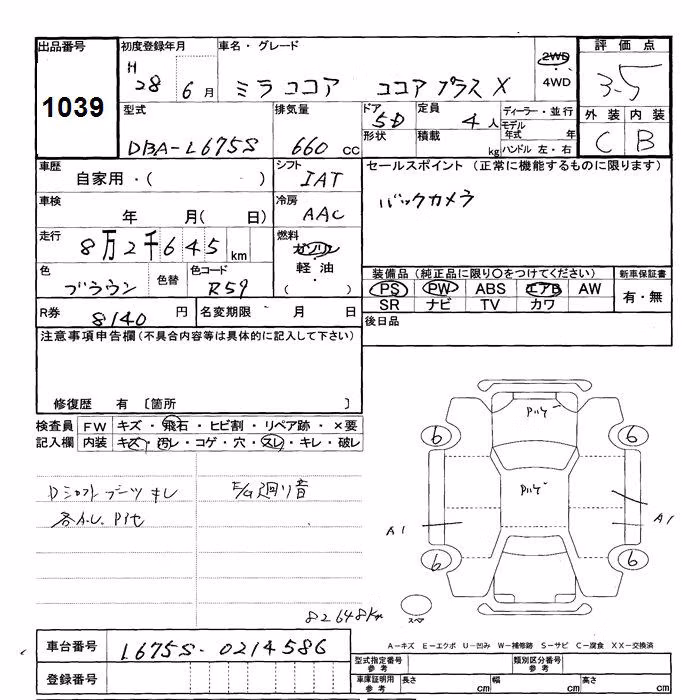 出品番号
1039
初度登録年月
H 28 6 月
車名・グレード
ミラココア ココアプラスX
2WD
4WD
評価点
3.5
外装 内装
C B
型式
DBA-L675S
排気量
660 cc
ドア
5D
形状
定員
4 人
積載
kg
ディーラー・並行
モデル年式 年
ハンドル 左・右
車歴
自家用・( )
シフト
IAT
セールスポイント (正常に機能するものに限ります)
バックカメラ
車検
年 月( 日)
冷房
AAC
走行
8万2千645 km
燃料
ガソリン
軽油
( ・ )
色
ブラウン
色替
色コード
R59
装備品 (純正品に限り○をつけてください)
PS PW ABS エアB AW
SR ナビ TV カワ
新車保証書
有・無
R券
8140 円
名変期限 月 日
後日品
注意事項申告欄(不具合内容等は具体的に記入して下さい)
修復歴 有 〔箇所 〕
検査員 FW キズ・飛石・ヒビ割・リペア跡・×要
記入欄 内装 キズ・汚レ・コゲ・穴・スレ・キレ・破レ
Dシフトブーツキレ
E/G廻り音
各A.U. P他
82648Km
6 6
A1 A1
6 6
スペア
A-キズ E-エクボ U-凹み W-補修跡 S-サビ C-腐食 XX-交換済
車台番号 L675S-0214586
登録番号
型式指定番号 参考
類別区分番号 参考
車庫証明用 参考
長さ cm 幅 cm 高さ cm